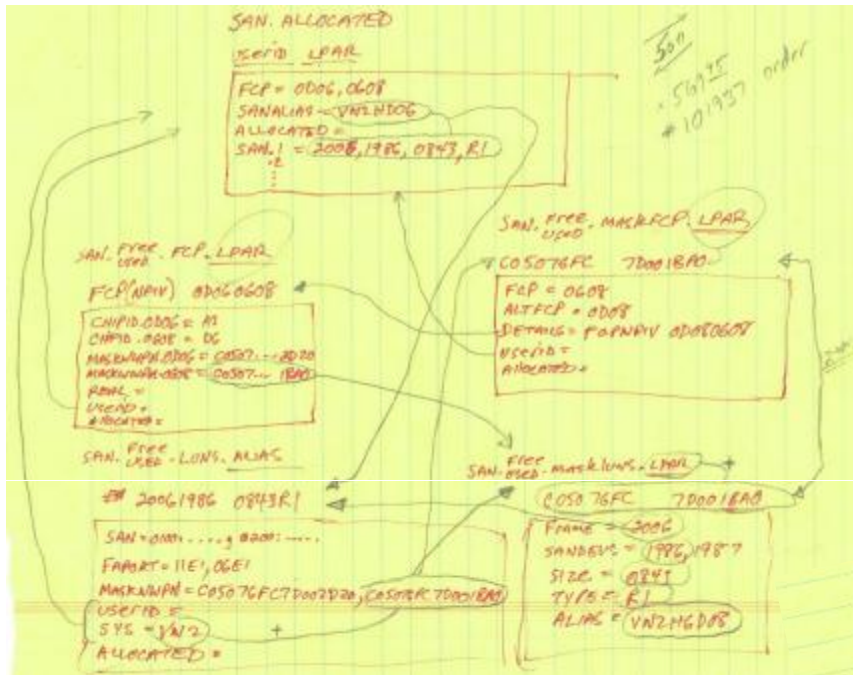 SAN. ALLOCATED
USERID LPAR
FCP = 0D06, 0608
SANALIAS = VN2HD06
ALLOCATED =
SAN.1 = 2006, 1986, 0843, R1
.2
101937 order
SAN. FREE USED . FCP. LPAR
FCP(NPIV) 0D060608
CHPID.0D06 = A1
CHPID.0608 = D6
MASKWWPN.0D06 = C0507...2D20
MASKWWPN.0608 = C0507...1BA0
REAL =
USERID =
ALLOCATED =
SAN. FREE USED . MASKFCP. LPAR
C05076FC 7D001BA0
FCP = 0608
ALTFCP = 0D08
DETAILS = FCPNPIV 0D080608
USERID =
ALLOCATED =
SAN. FREE USED . LUNS. ALIAS
20061986 0843R1
FAPORT = 11E1, 06E1
MASKWWPN = C05076FC7D002D20, C05076FC7D001BA0
USERID =
SYS = VN2
ALLOCATED =
SAN. FREE USED . MASKLUNS. LPAR
C05076FC 7D001BA0
FRAME = 2006
SANDEVS = 1986, 1987
SIZE = 0843
TYPE = R1
ALIAS = VN2H6D08